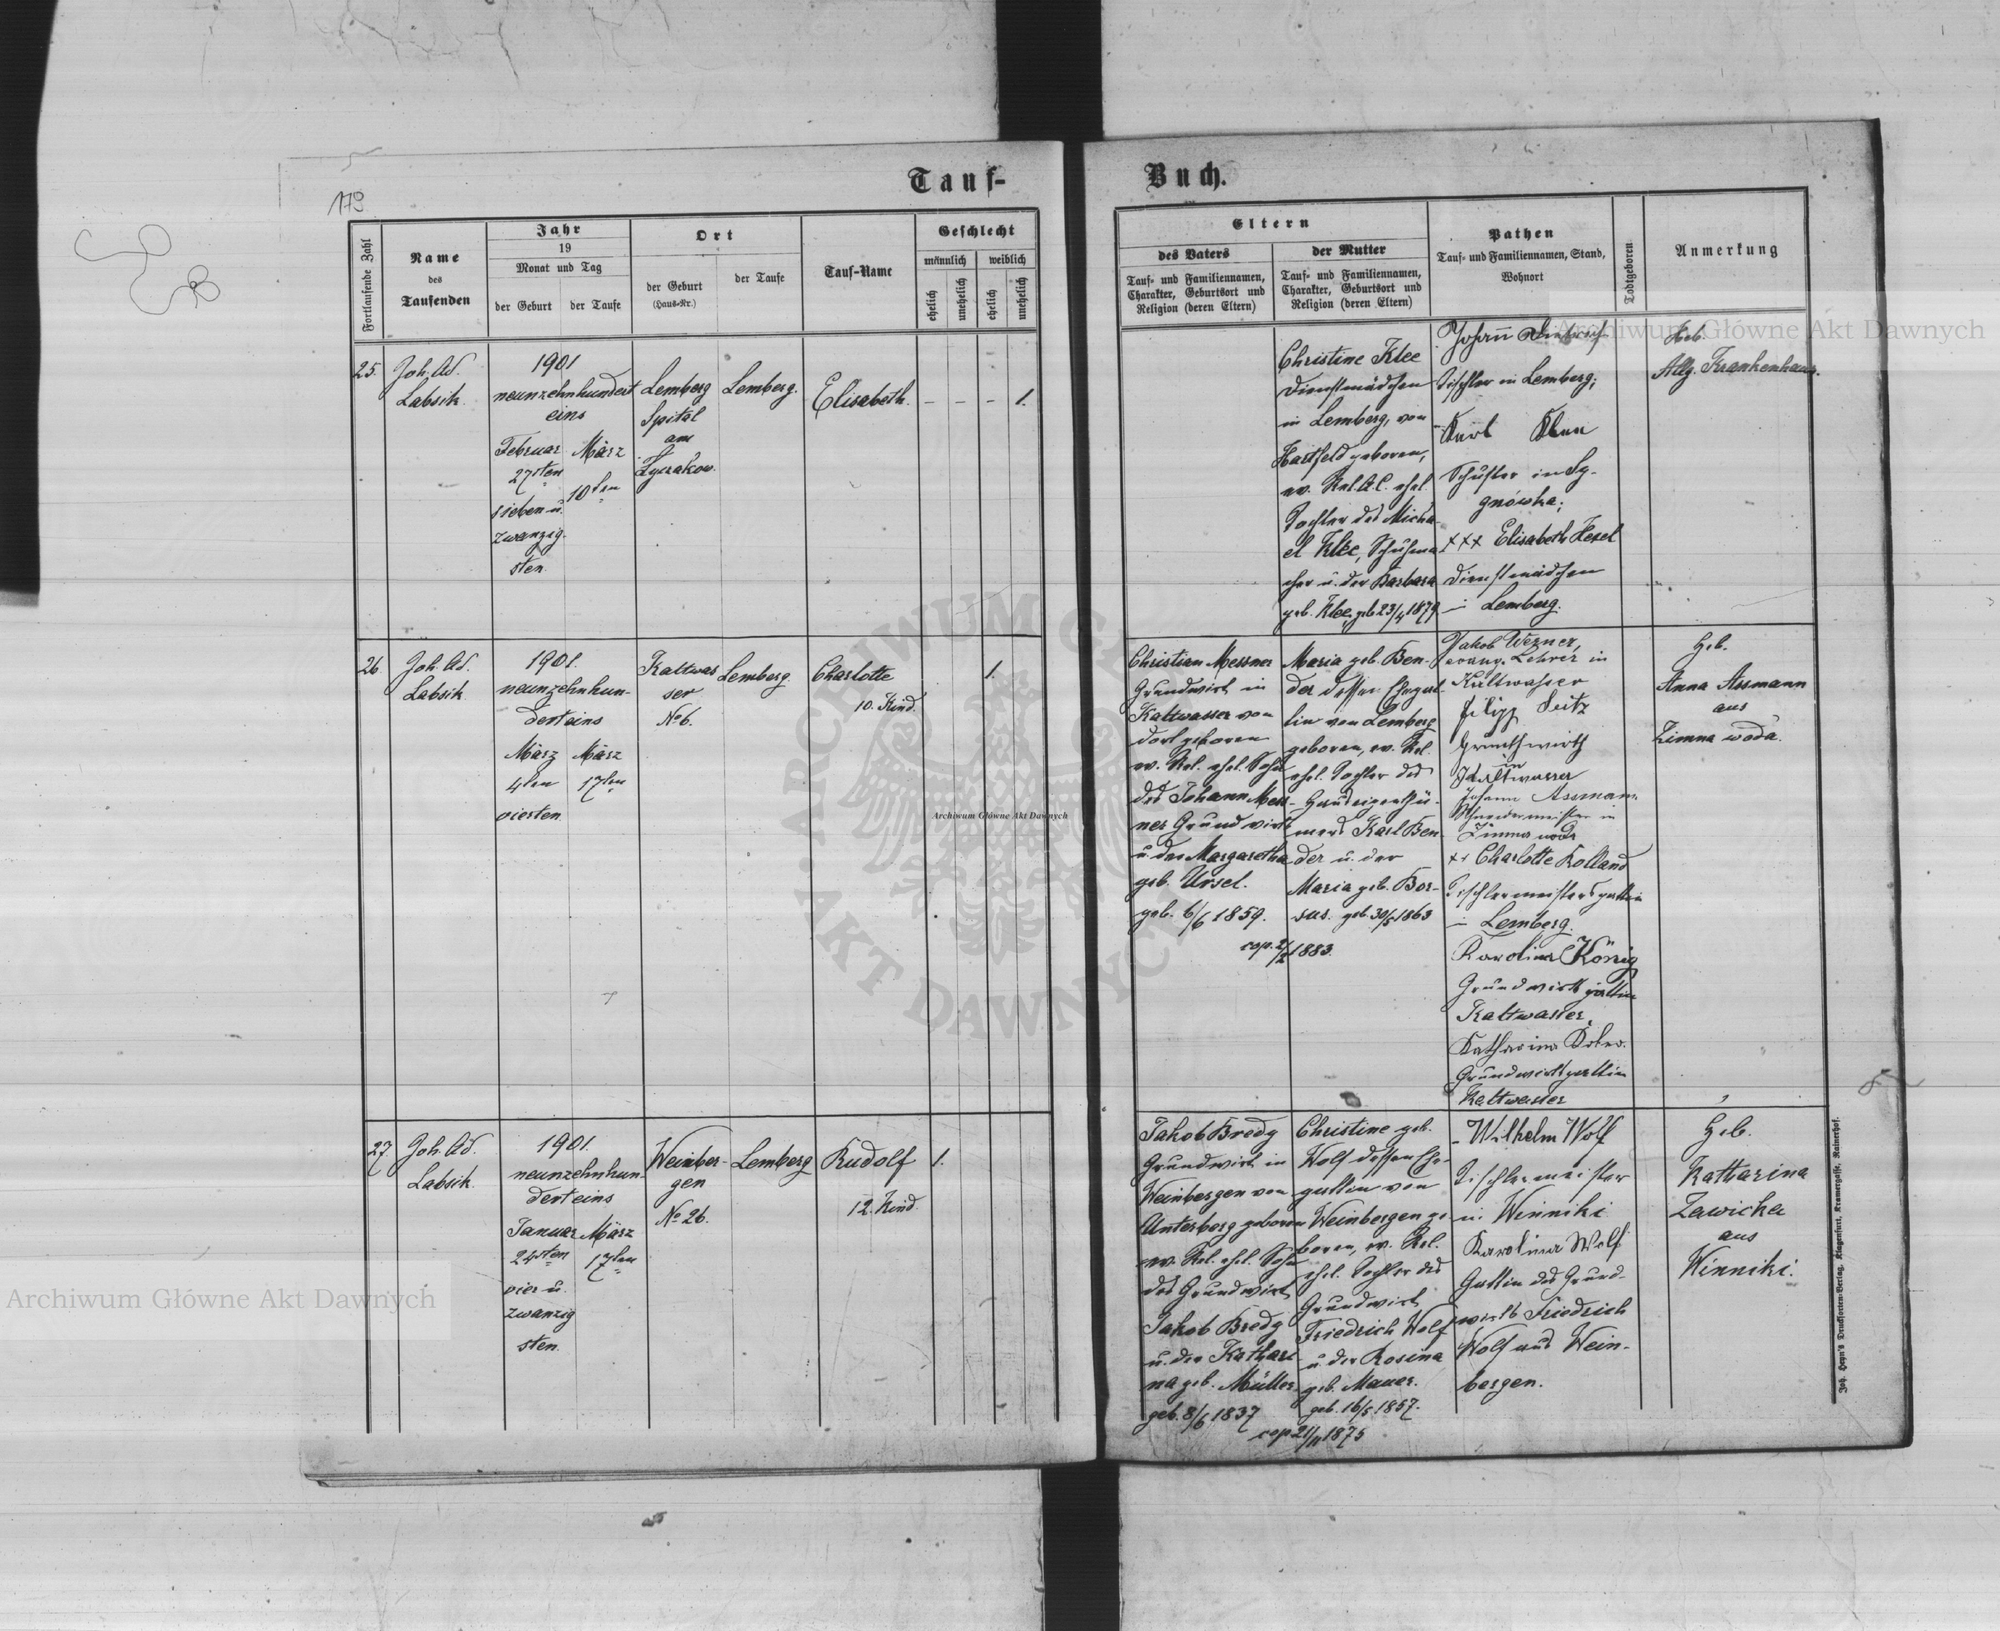 Tauf-
Buch.
179
Fortlaufende Zahl
Name
des
Taufenden
Jahr
19
Monat und Tag
der Geburt
der Taufe
Ort
der Geburt
(Haus-Nr.)
der Taufe
Tauf-Name
Geschlecht
männlich
weiblich
ehelich
unehelich
ehelich
unehelich
Eltern
des Vaters
Tauf- und Familiennamen,
Charakter, Geburtsort und
Religion (deren Eltern)
der Mutter
Tauf- und Familiennamen,
Charakter, Geburtsort und
Religion (deren Eltern)
Pathen
Tauf- und Familiennamen, Stand,
Wohnort
Todtgeboren
Anmerkung
25.
Joh. Ad.
Labsik.
1901
neunzehnhundert
eins
Februar
27sten
sieben u.
zwanzig-
sten
März
10ten
Lemberg
Spital
am
Łyczaków.
Lemberg.
Elisabeth.
- - - 1.
Christine Klee
Dienstmädchen
in Lemberg, von
Hartfeld geboren,
ev. Rel. A.C. ehel.
Tochter des Micha-
el Klee, Schuhma-
cher u. der Barbara
geb. Klee, geb. 23/4 1879
Johann
Tischler in Lemberg;
Karl Klee
Schuster in Sy-
gnówka;
+++ Elisabeth Hexel
Dienstmädchen
in Lemberg.
Heb.
Allg. Krankenhaus.
26.
Joh. Ad.
Labsik
1901.
neunzehnhun-
derteins
März
4ten
vierten
März
17ten
Kaltwas
ser
No 6.
Lemberg.
Charlotte
10. Kind.
1.
Christian Messner
Grundwirt in
Kaltwasser von
dort geboren
ev. Rel. ehel. Sohn
des Johann Mess-
ner Grundwirt
u. der Margaretha
geb. Ursel.
geb. 6/6 1859.
Maria geb. Ben-
der dessen Ehegat-
tin von Lemberg
geboren, ev. Rel.
ehel. Tochter des
Grundeigenthü-
mers Karl Ben-
der u. der
Maria geb. Bor-
sus. geb. 30/5 1863
cop. 2/2 1883.
Jakob Wezner,
evang. Lehrer in
Kaltwasser
Filipp Seitz
Grundwirth
in
Kaltwasser
Johann Assmann
Schneidermeister in
Zimna woda
++ Charlotte Kolland
Tischlermeistersgattin
in Lemberg.
Karolina König
Grundwirthgattin
Kaltwasser,
Katharina
Grundwirtsgattin
Kaltwasser
Heb.
Anna Assmann
aus
Zimna woda.
27.
Joh. Ad.
Labsik.
1901.
neunzehnhun-
derteins
Januar
24sten
vier u.
zwanzig
sten.
März
17ten
Weinber-
gen
No 26.
Lemberg
Rudolf
12. Kind.
1.
Jakob Bredy
Grundwirt in
Weinbergen von
Unterberg geboren
ev. Rel. ehel. Sohn
des Grundwirt
Jakob Bredy
u. der Kathari
na geb. Müller
geb. 8/6 1837
Christine geb.
Wolf dessen Ehe-
gattin von
Weinbergen ge
boren, ev. Rel.
ehel. Tochter des
Grundwirt
Friedrich Wolf
u. der Rosina
geb. Mauer.
geb. 16/5 1857.
cop. 21/11 1875
- Wilhelm Wolf
Tischlermeister
in Winniki
Karolina Wolf
Gattin des Grund-
wirts Friedrich
Wolf aus Wein-
bergen.
Heb.
Katharina
Zawicka
aus
Winniki.
Joh. Heyn's Drucksorten-Verlag, Klagenfurt, Kramergasse, Rainerhof.
Archiwum Główne Akt Dawnych
Archiwum Główne Akt Dawnych
Archiwum Główne Akt Dawnych